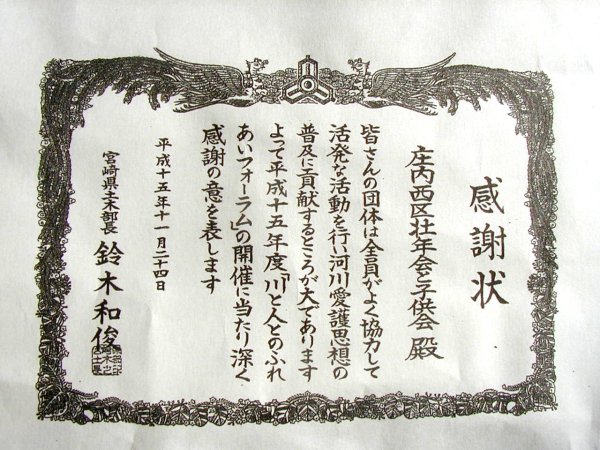 感謝状
庄内西区壮年会と子供会 殿
皆さんの団体は全員がよく協力して
活発な活動を行い河川愛護思想の
普及に貢献するところが大であります
よって平成十五年度「川と人とのふれ
あいフォーラム」の開催に当たり深く
感謝の意を表します
平成十五年十一月二十四日
宮崎県土木部長 鈴木和俊